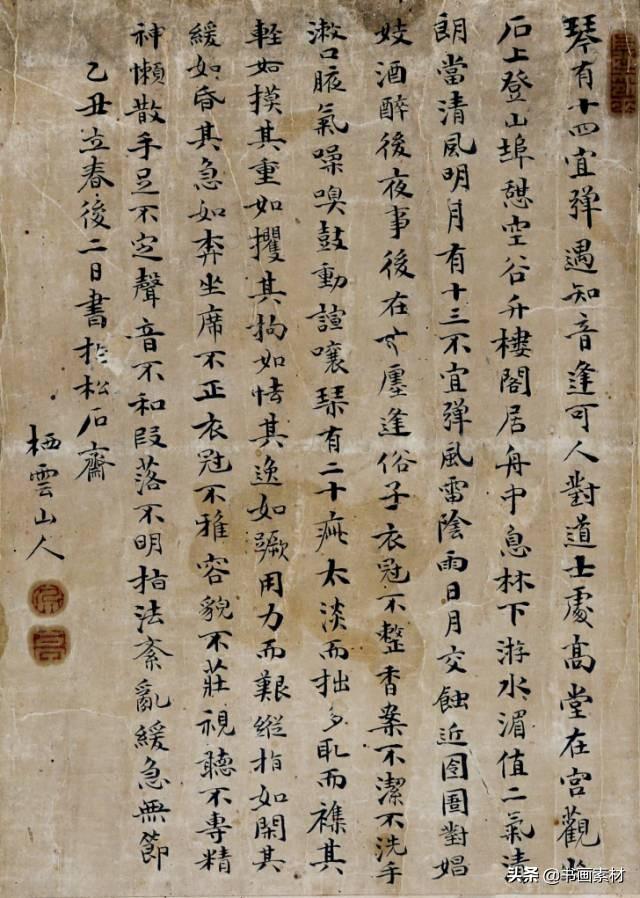 琴有十四宜彈遇知音逢可人對道士處高堂在宮觀坐
石上登山埠憇空谷升樓閣居舟中息林下游水湄值二氣清
朗當清風明月有十三不宜彈風雷陰雨日月交蝕近囹圄對娼
妓酒醉後夜事後在廛逢俗子衣冠不整香案不潔不洗手
漱口腋氣噪嗅鼓動諠嚷琴有二十疵太淡而拙多取而襍其
輕如摸其重如攫其拘如怯其逸如蹶用力而艱縱指如閑其
緩如昏其急如奔坐席不正衣冠不雅容貌不莊視聽不專精
神懶散手足不定聲音不和段落不明指法紊亂緩急無節
乙丑立春後二日書於松石齋
栖雲山人
头条 @书画素材